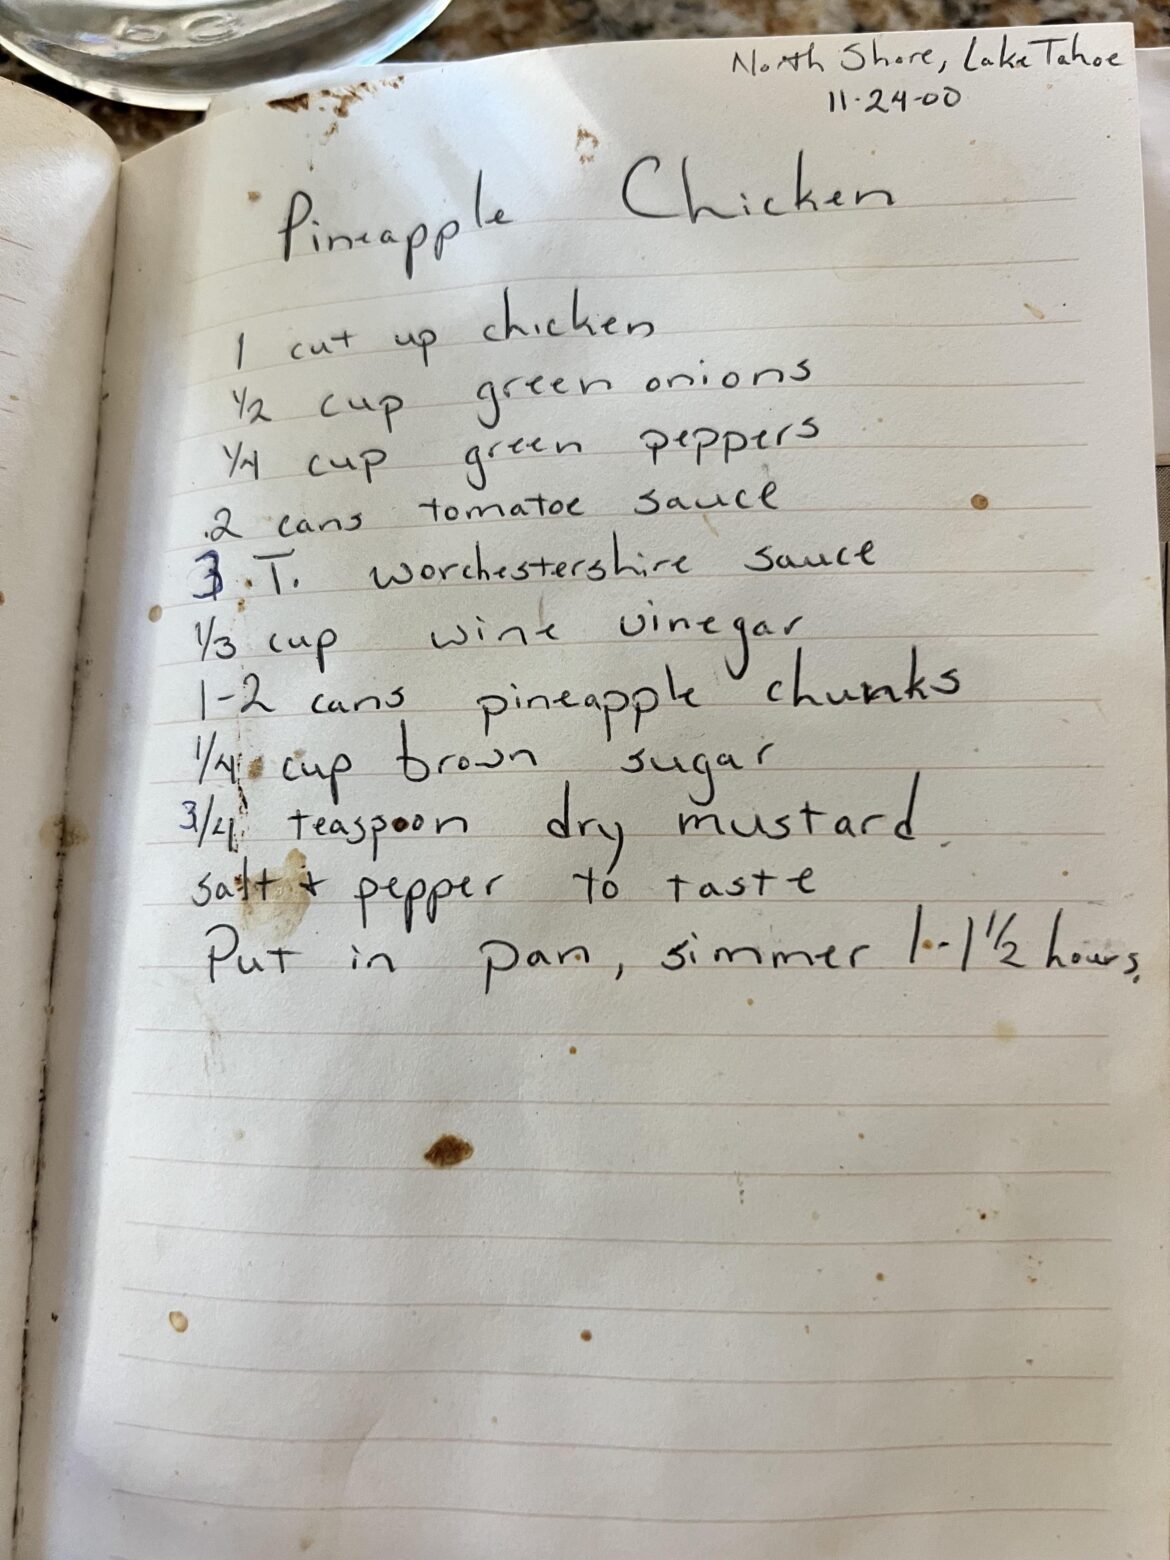 North Shore, Lake Tahoe
11-24-00
Pineapple Chicken
1 cut up chicken
1/2 cup green onions
1/4 cup green peppers
2 cans tomatoe sauce
3 T. worchestershire sauce
1/3 cup wine vinegar
1-2 cans pineapple chunks
1/4 cup brown sugar
3/4 teaspoon dry mustard
salt + pepper to taste
Put in pan, simmer 1-1 1/2 hours.